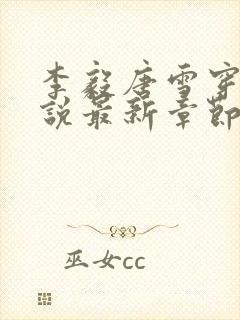 李毅唐雪穿
说最新章节
巫女cc